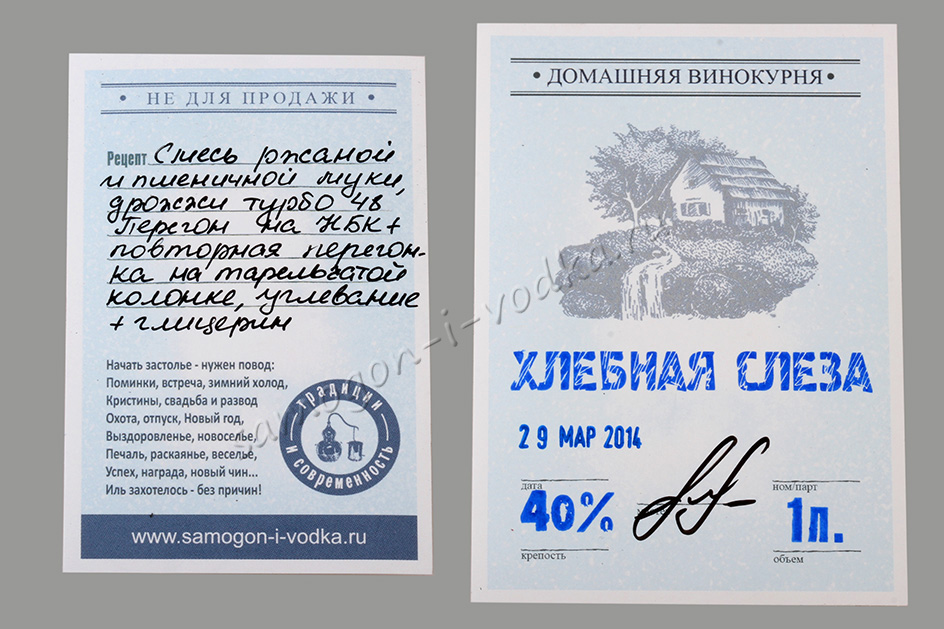 • НЕ ДЛЯ ПРОДАЖИ •
Рецепт Смесь ржаной
и пшеничной муки,
дрожжи турбо 48
Перегон на НБК +
повторная перегон-
ка на тарельчатой
колонке, углевание
+ глицерин
Начать застолье - нужен повод:
Поминки, встреча, зимний холод,
Кристины, свадьба и развод
Охота, отпуск, Новый год,
Выздоровленье, новоселье,
Печаль, раскаянье, веселье,
Успех, награда, новый чин...
Иль захотелось - без причин!
традиции
и современность
www.samogon-i-vodka.ru
• ДОМАШНЯЯ ВИНОКУРНЯ •
ХЛЕБНАЯ СЛЕЗА
29 МАР 2014
дата
ном/парт
40%
1л.
крепость
объем
samogon-i-vodka.ru